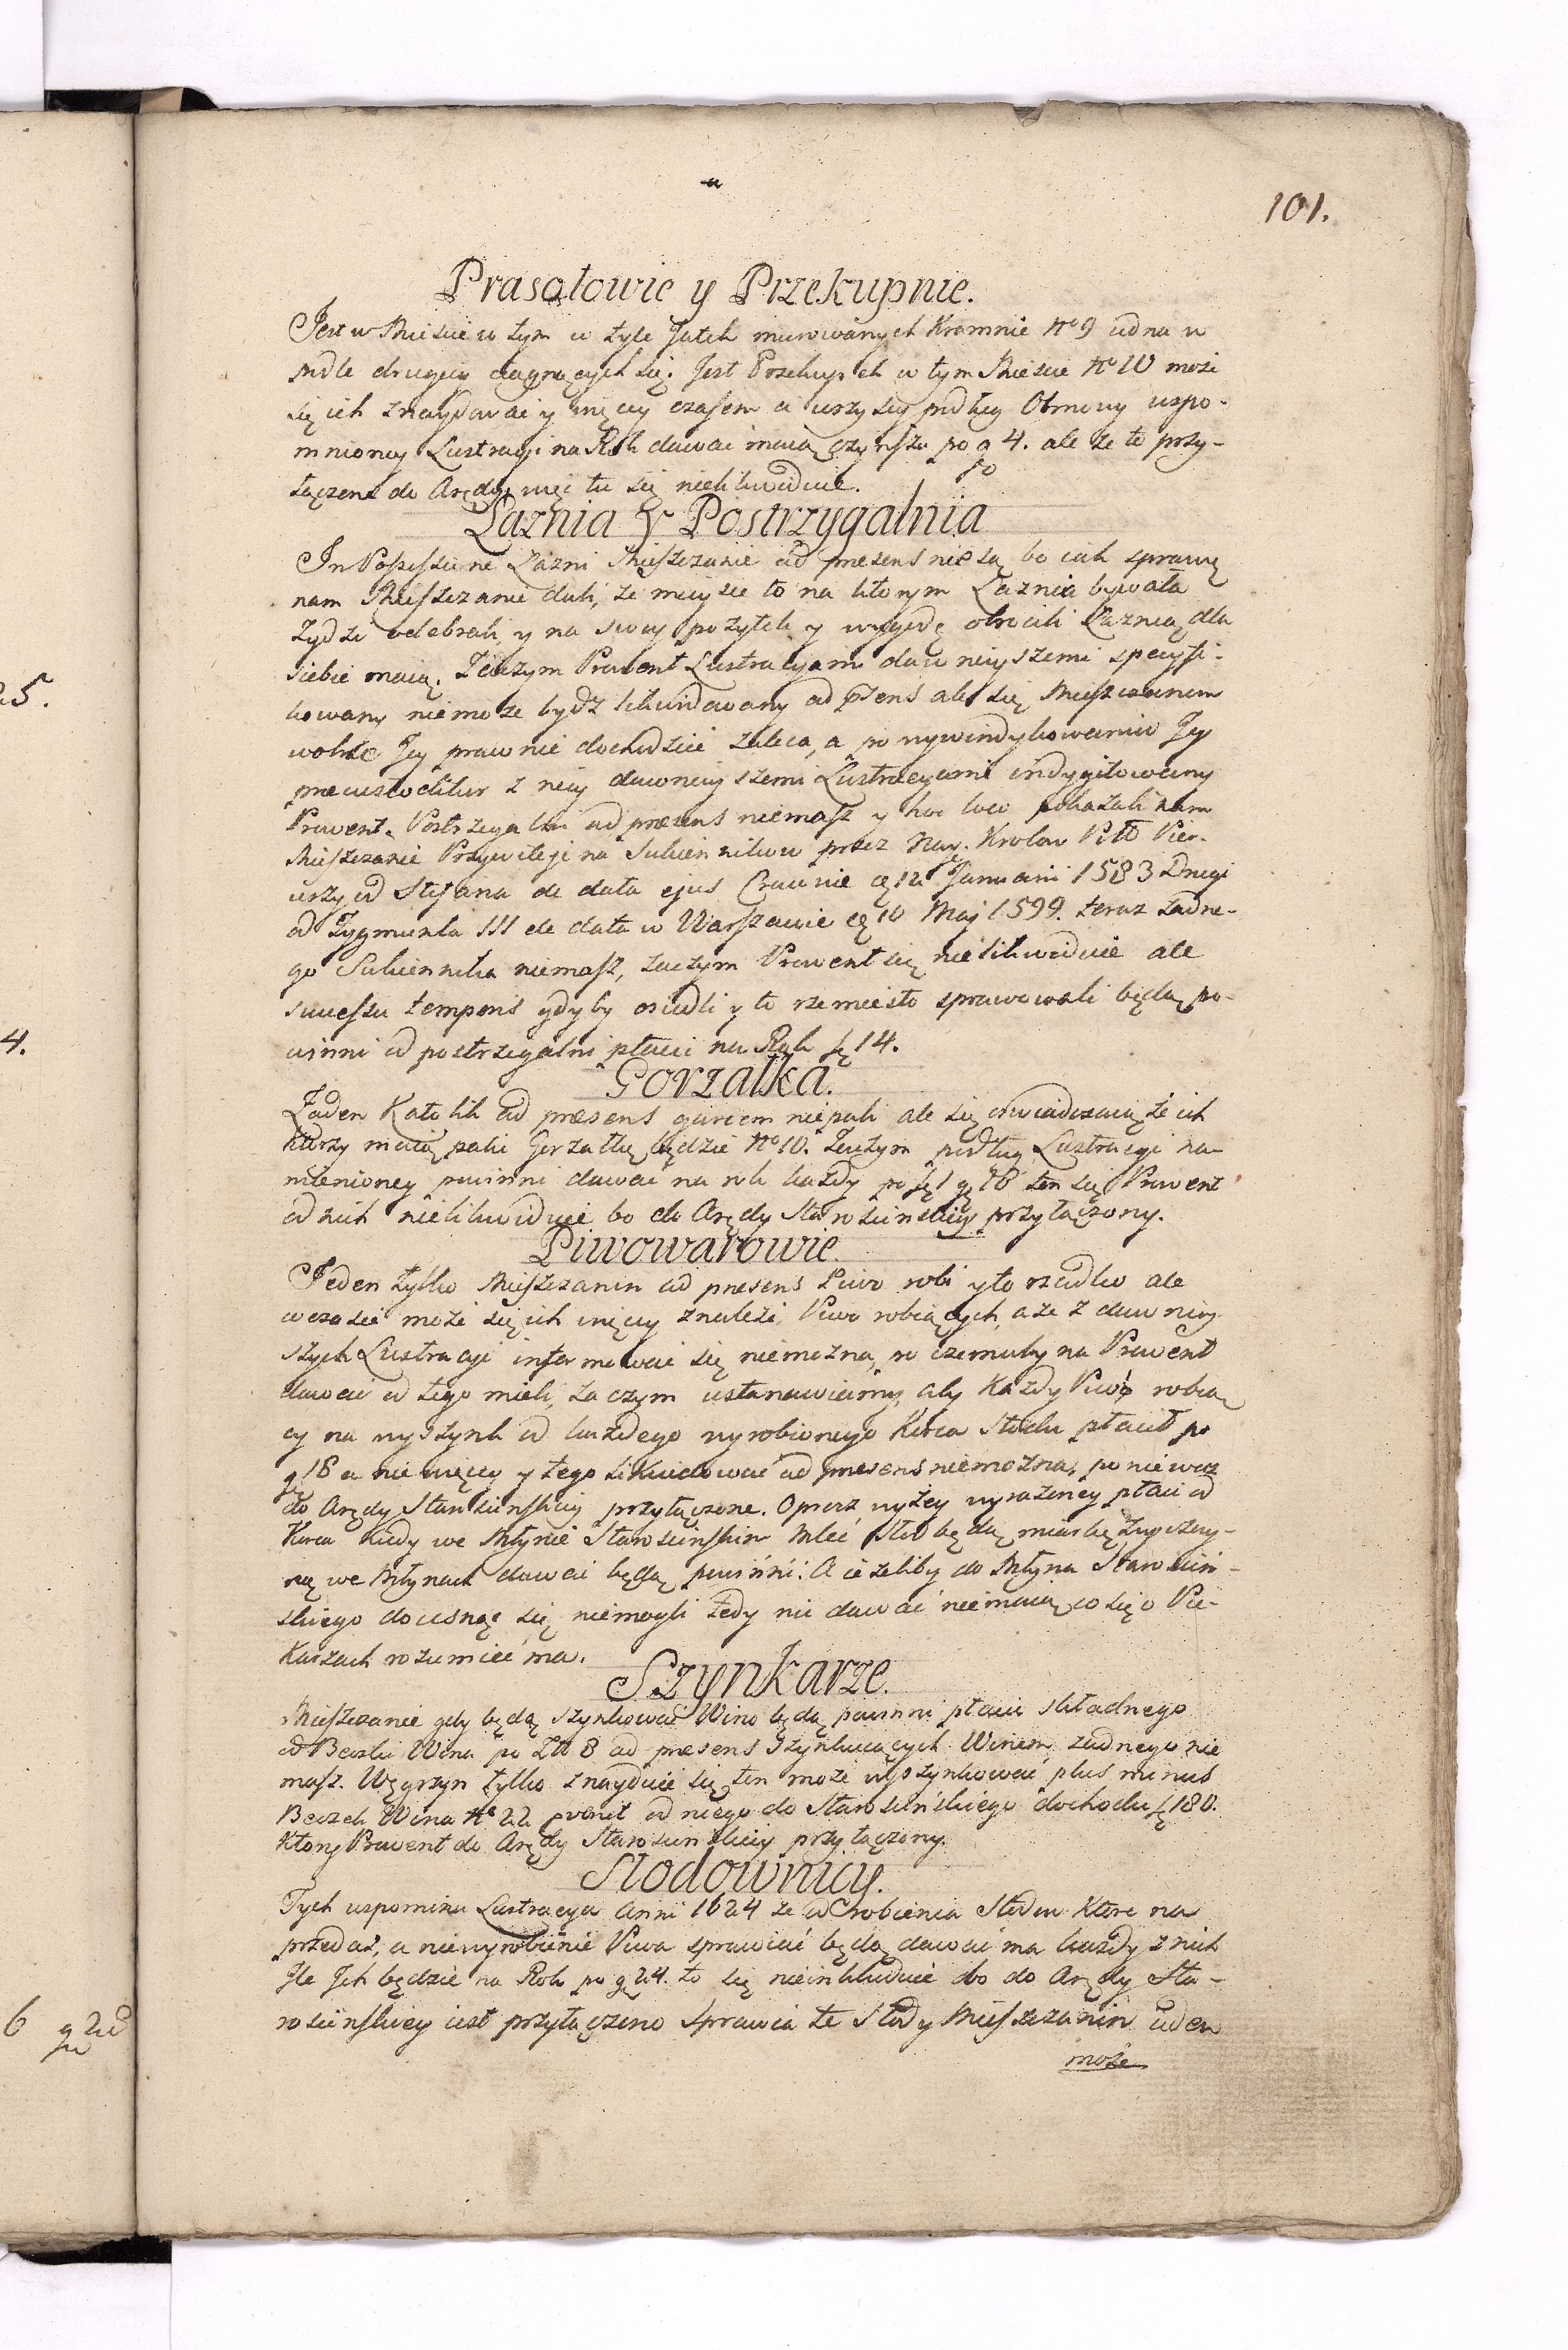 101.
Prasołowie y Przekupnie.
Jest w Mieście tym w tyle Jatek murowanych Kramnic No 9 iedna w
podle drugiey ciągnących się. Jest Przekupek w tym Mieście No 10 może
się ich znaydować y więcy czasem a wszyscy podług Obmowy wspo-
mnioney Lustracyi na Rok dawać maią czynszu po g 4. ale że to przy-
łączone do Arędy, więc tu się nielikwiduie.
Łaznia y Postrzygalnia
In Possessione Łazni Mieszczanie ad presens nie są bo iak sprawę
nam Mieszczanie dali, że mieysce to na ktorym Łaznia bywała
Żydzi odebrali, y na swoy pożytek y wygodę obrocili Łaznią dla
siebie maią. Zaczym Prowent Lustracyami dawnieyszemi specyfi-
kowany niemoze bydz likwidowany ad psens ale się Mieszczanom
wolne Jey prawnie dochodzić zaleca, a po wywindykowaniu Jey
precustoditur z niey dawnieyszemi Lustracyami indygitowany
Prowent. Postrzygalni ad presens niemasz y hoc loco pokazali nam
Mieszczanie Przywileje na Sukiennikow przez Nay. Krolow Pttō Pier-
wszy od Stefana de data ejus Cracovie 12 Januarii 1583 Drugi
od Zygmunta III de data w Warszawie 10 Maj 1599. teraz żadne-
go Sukiennika niemasz, zaczym Prowent się nielikwiduie ale
sucessu temporis gdyby osiedli y to rzemiesło sprawowali będą po-
winni od postrzygalni płacić na Rok 14.
Gorzałka.
Żaden Katolik ad presens garcem niepali ale się oświadczaią że ich
ktorzy maią palić Gorzałkę będzie No 10. Zaczym podług Lustracyi na-
mienioney powinni dawać na rok każdy po 1 18 ten się Prowent
od nich nielikwiduie bo do Arędy Starościnskiey przyłączony.
Piwowarowie
Jeden tylko Mieszczanin ad presens Piwo robi y to rzadko ale
w czasie może się ich więcy znaleźć Piwo robiących, a że z dawniey
szych Lustracyi informować się niemożna, po czemuby na Prowent
dawać od tego mieli, za czym ustanawiamy, aby Każdy Piwo robią
cy na wyszynk od każdego wyrobionego Korca Słodu płacił po
g 18 a nie więcey y tego Likwidować ad presens niemożna, ponieważ
do Arędy Starościnskiey przyłączone. Oprocz wyżey wyrażoney płaci od
Korca kiedy we Młynie Starościnskim Mleć Słod będą miarkę Zwyczay-
ną we Młynach dawać będą powinni. A ieżeliby do Młyna Starościn-
skiego docisnąc się niemogli tedy nic dawać niemaią co się o Pie-
Karzach rozumieć ma.
Szynkarze.
Mieszczanie gdy będą szynkować Wino będą powinni płacić składnego
od Beczki Wina po Zll 8 ad presens Szynkuiących Winem żadnego nie
masz. Węgrzyn tylko znayduie się ten może wyszynkować plus minus
Beczek Wina No 22 od niego do Starościńskiego dochodu 180.
Ktory Prowent do Arędy Starościnskiey przyłączony.
Słodownicy.
Tych wspomina Lustracya Anni 1624 że od robienia Słodow Ktore na
przedaż, a nie wyrobienie Piwa sprawiać będą dawać ma każdy z nich
Ile Ich będzie na Rok po g 24. to się nieinkluduie bo do Arędy Sta-
rościnskiey iest przyłączono Sprawia te Słody Mieszczanin ieden
może